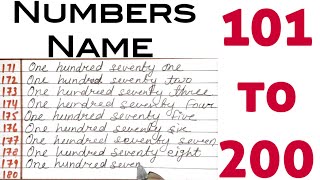 NUMBERS
NAME
101
TO
200
171 One hundred seventy one
172 One hundred seventy two
173 One hundred seventy three
174 One hundred seventy four
175 One hundred seventy five
176 One hundred seventy six
177 One hundred seventy seven
178 One hundred seventy eight
179 One hundred seven
180